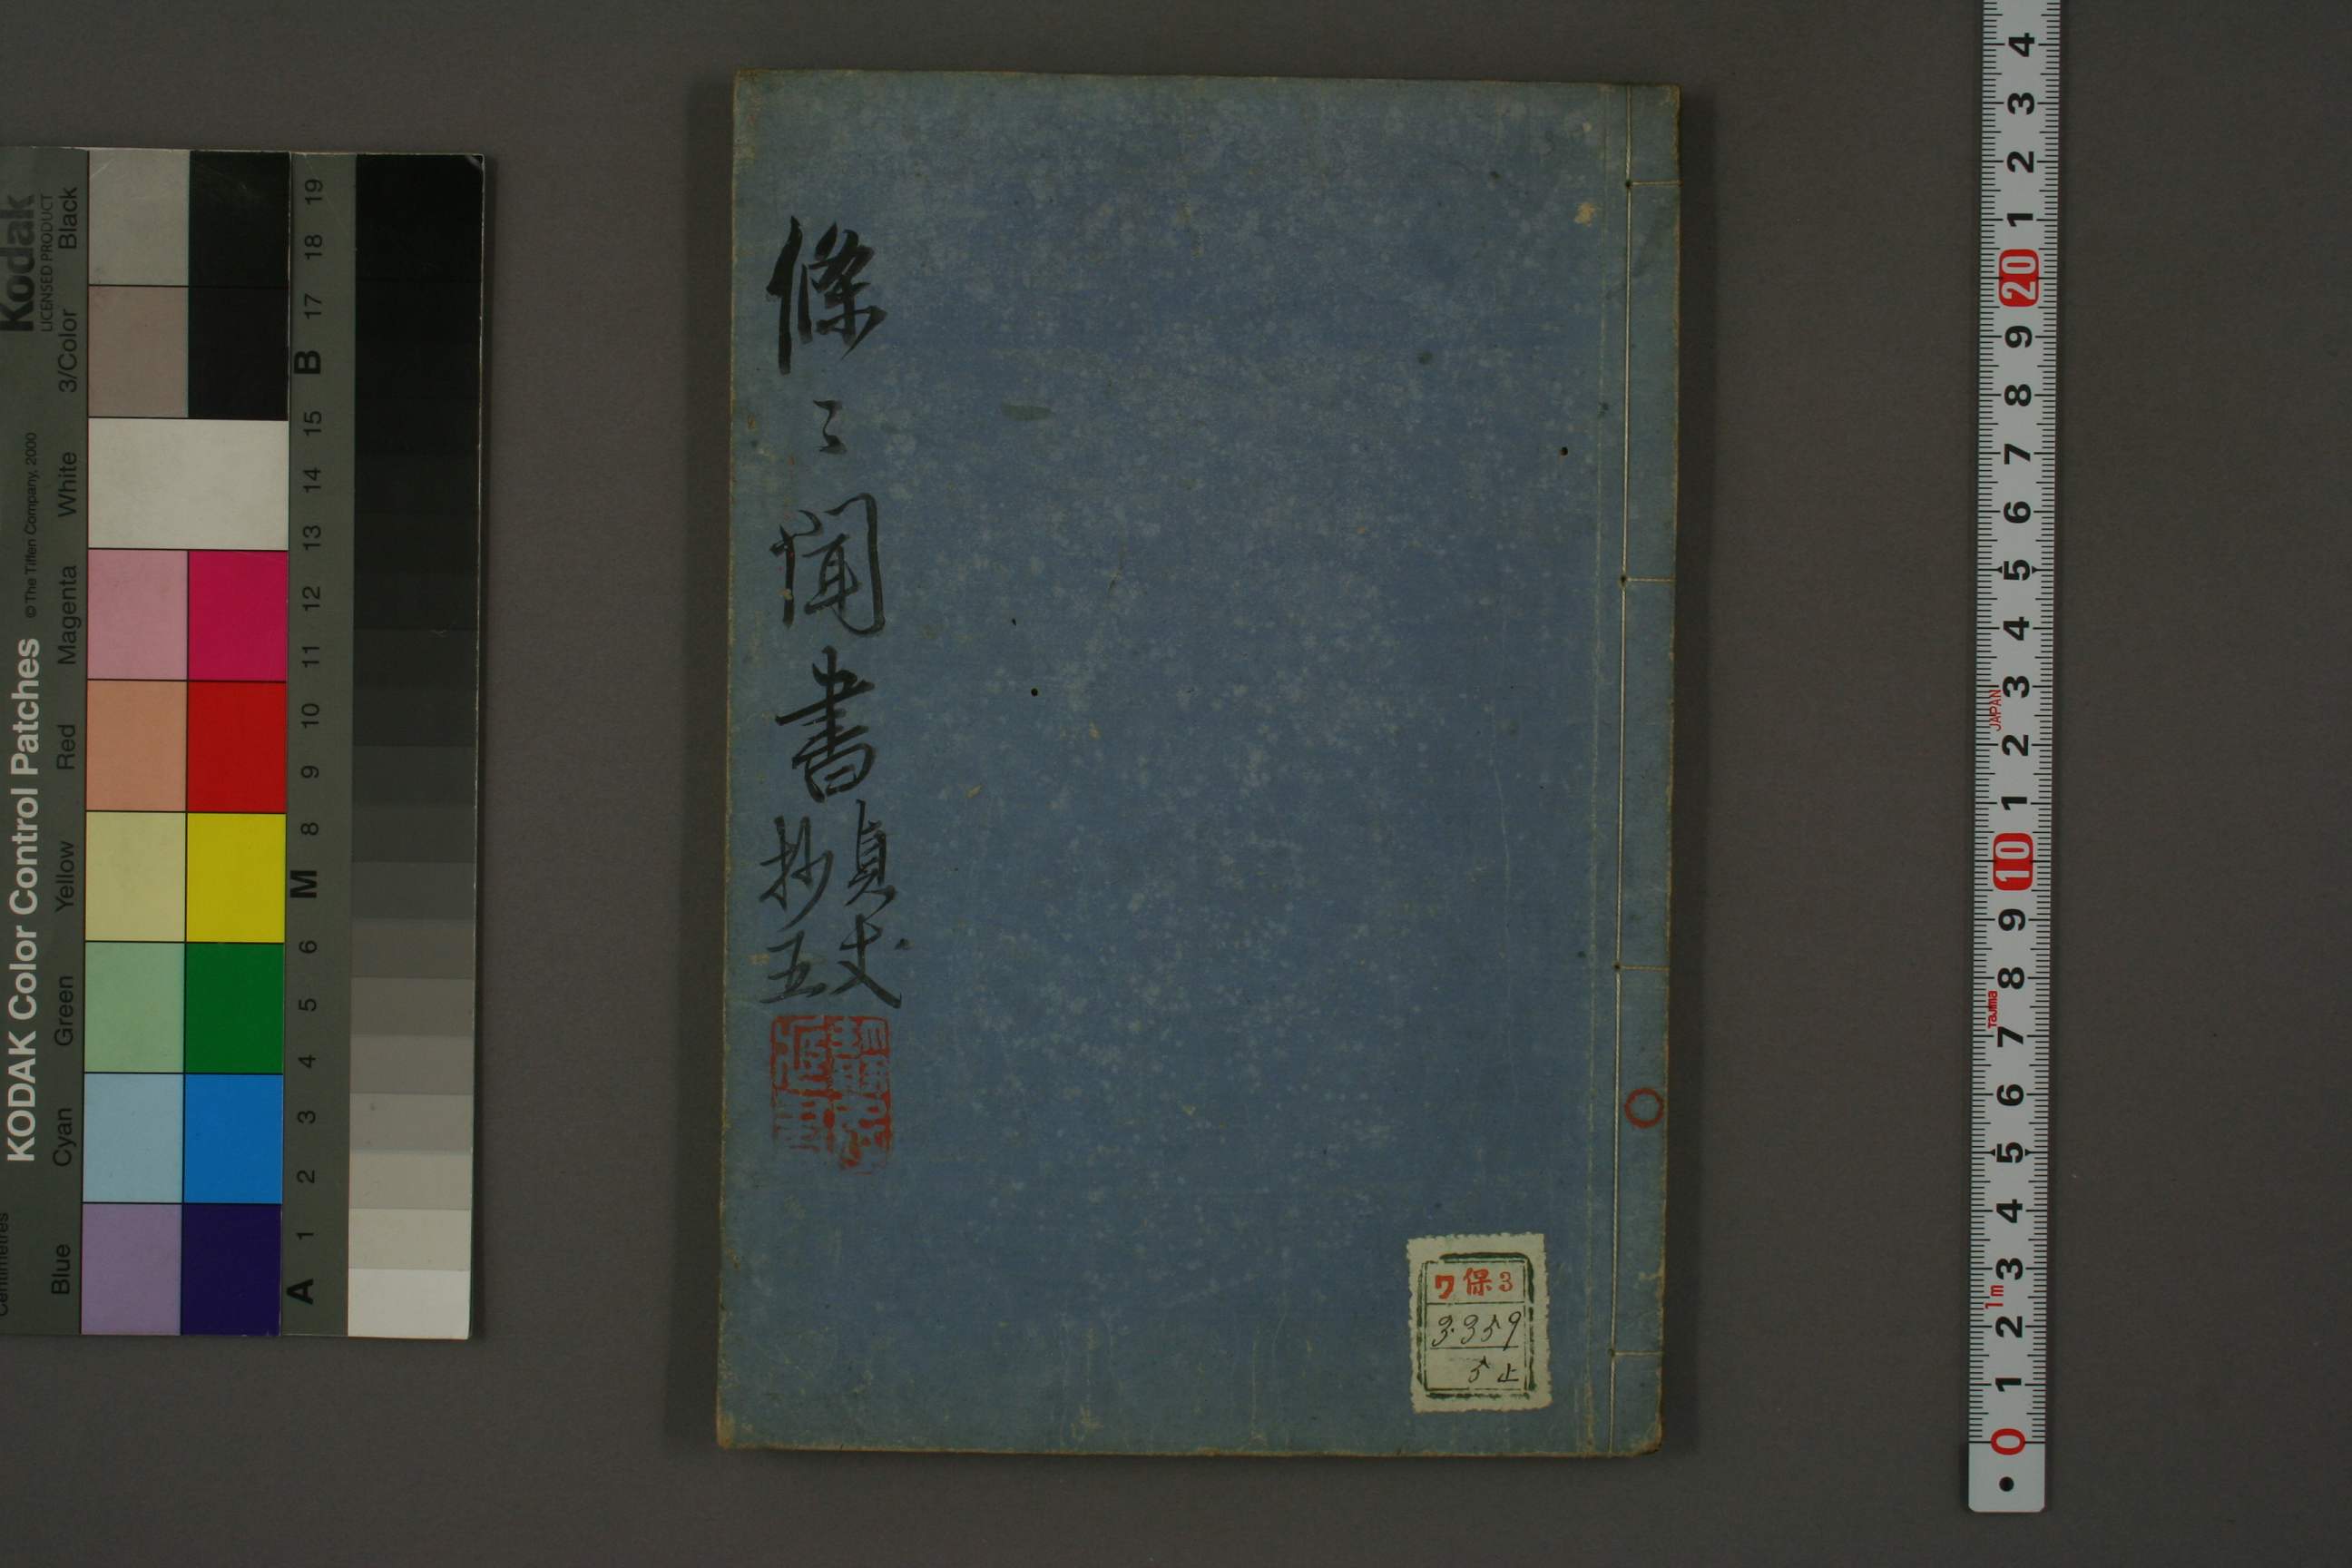 條〻聞書
貞丈
抄五
ワ保3
3・359
5止
KODAK Color Control Patches
© The Tiffen Company, 2000
Kodak
LICENSED PRODUCT
Centimetres
Blue
Cyan
Green
Yellow
Red
Magenta
White
3/Color
Black
A 1 2 3 4 5 6 M 8 9 10 11 12 13 14 15 B 17 18 19
0 1 2 3 4 5 6 7 8 9 10 1 2 3 4 5 6 7 8 9 20 1 2 3 4
1m
Tajima
JAPAN